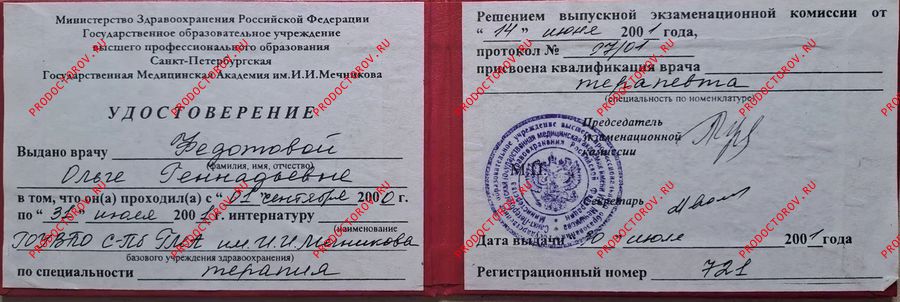 Министерство Здравоохранения Российской Федерации
Государственное образовательное учреждение
высшего профессионального образования
Санкт-Петербургская
Государственная Медицинская Академия им.И.И.Мечникова
УДОСТОВЕРЕНИЕ
Выдано врачу Федотовой
(фамилия, имя, отчество)
Ольге Геннадьевне
в том, что он(а) проходил(а) с "01" сентября 2000 г.
по "31" июля 2001 г. интернатуру
(наименование
ГОУВПО С-Пб ГМА им. И.И. Мечникова
базового учреждения здравоохранения)
по специальности терапия
Решением выпускной экзаменационной комиссии от
" 14 " июня 2001 года,
протокол № 97/01
присвоена квалификация врача
терапевта
(специальность по номенклатуре)
Председатель
экзаменационной
комиссии
М.П.
Секретарь
Дата выдачи 30 июля 2001 года
Регистрационный номер 721
PRODOCTOROV.RU